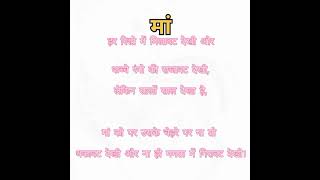 मां
हर रिश्ते में मिलावट देखी और
कच्चे रंगों की सजावट देखी,
लेकिन सालों साल देखा है,
मां को पर उसके चेहरे पर ना तो
थकावट देखी और ना ही ममता में गिरावट देखी।